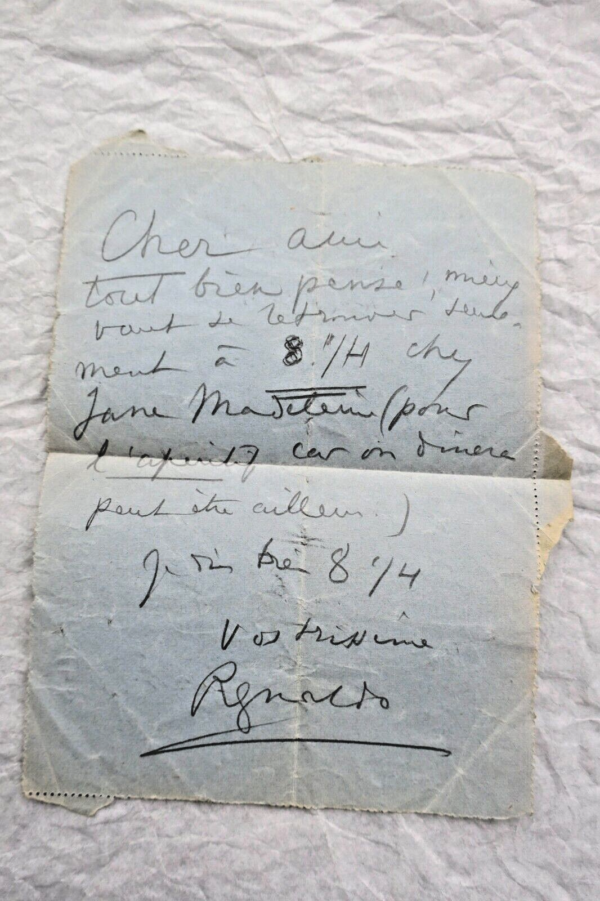 Cher ami
tout bien pensé, mieux
vaut se retrouver seule-
ment à 8.1/4 chez
Jane Madeleine (pour
l'apéritif car on dinera
peut être ailleurs.)
Je dis bien 8 1/4
Vostrissime
Reynaldo